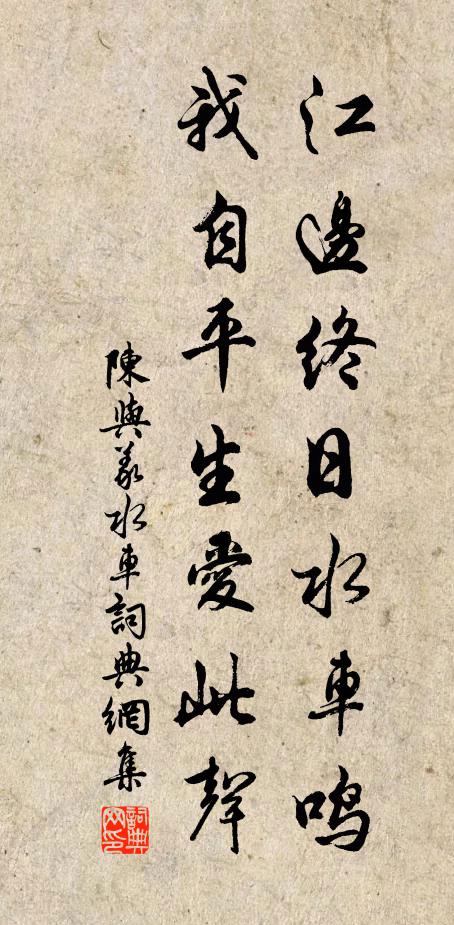 江邊終日水車鳴
我自平生愛此聲
陳與義水車詞典網集
詞典網印